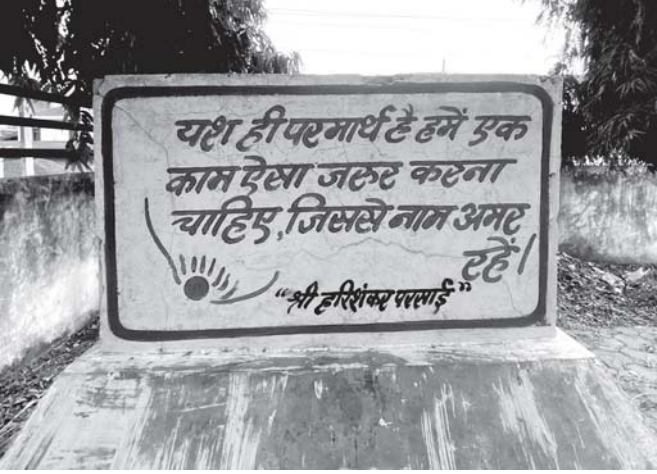 यश ही परमार्थ है हमें एक
काम ऐसा जरुर करना
चाहिए, जिससे नाम अमर
रहें।
“श्री हरिशंकर परसाई”